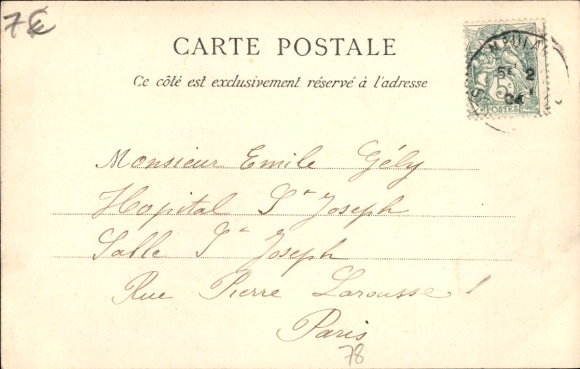 7€
CARTE POSTALE
Ce côté est exclusivement réservé à l'adresse
5E 2
04
5c
POSTES
Monsieur Emile Gély
Hopital St Joseph
Salle St Joseph
Rue Pierre Larousse
Paris
78